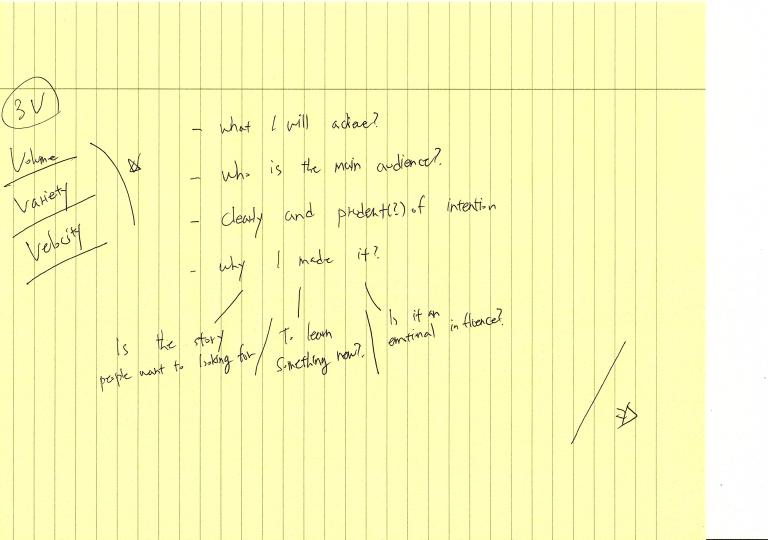 3V
Volume
Variety
Velocity
- what I will achieve?
- who is the main audience?
- clearly and prudent(?) of intention
- why I made it?
Is the story
people want to looking for
To learn
something new?
Is it an
emotinal influence?